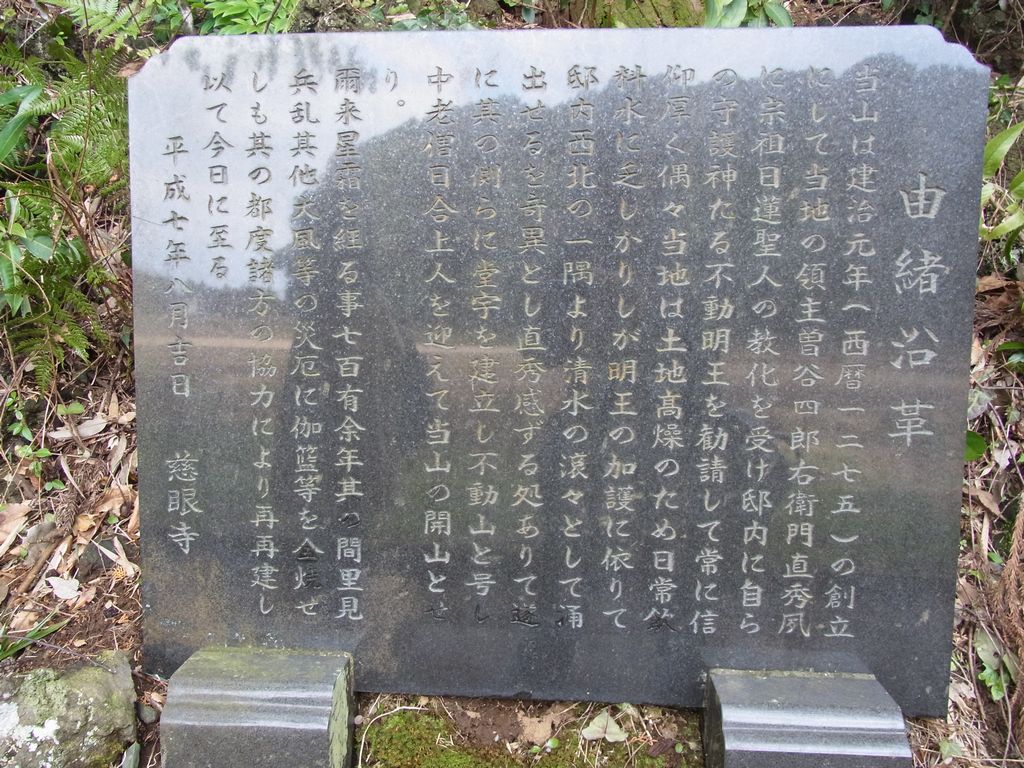 由緒沿革
当山は建治元年（西暦一二七五）の創立
にして当地の領主曽谷四郎右衛門直秀夙
に宗祖日蓮聖人の教化を受け邸内に自ら
の守護神たる不動明王を勧請して常に信
仰厚く偶々当地は土地高燥のため日常飲
料水に乏しかりしが明王の加護に依りて
邸内西北の一隅より清水の滾々として涌
出せるを奇異とし直秀感ずる処ありて遂
に其の側らに堂宇を建立し不動山と号し
中老僧日合上人を迎えて当山の開山とせ
り。
爾来星霜を経る事七百有余年其の間里見
兵乱其他大風等の災厄に伽籃等を全焼せ
しも其の都度諸方の協力により再再建し
以て今日に至る
平成七年八月吉日　慈眼寺